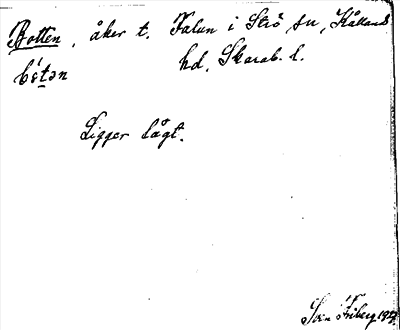 Botten, åker t. Falun i Strö sn, Kållands
hd, Skarab. l.
bòtən
Ligger lågt.
Sven Friberg